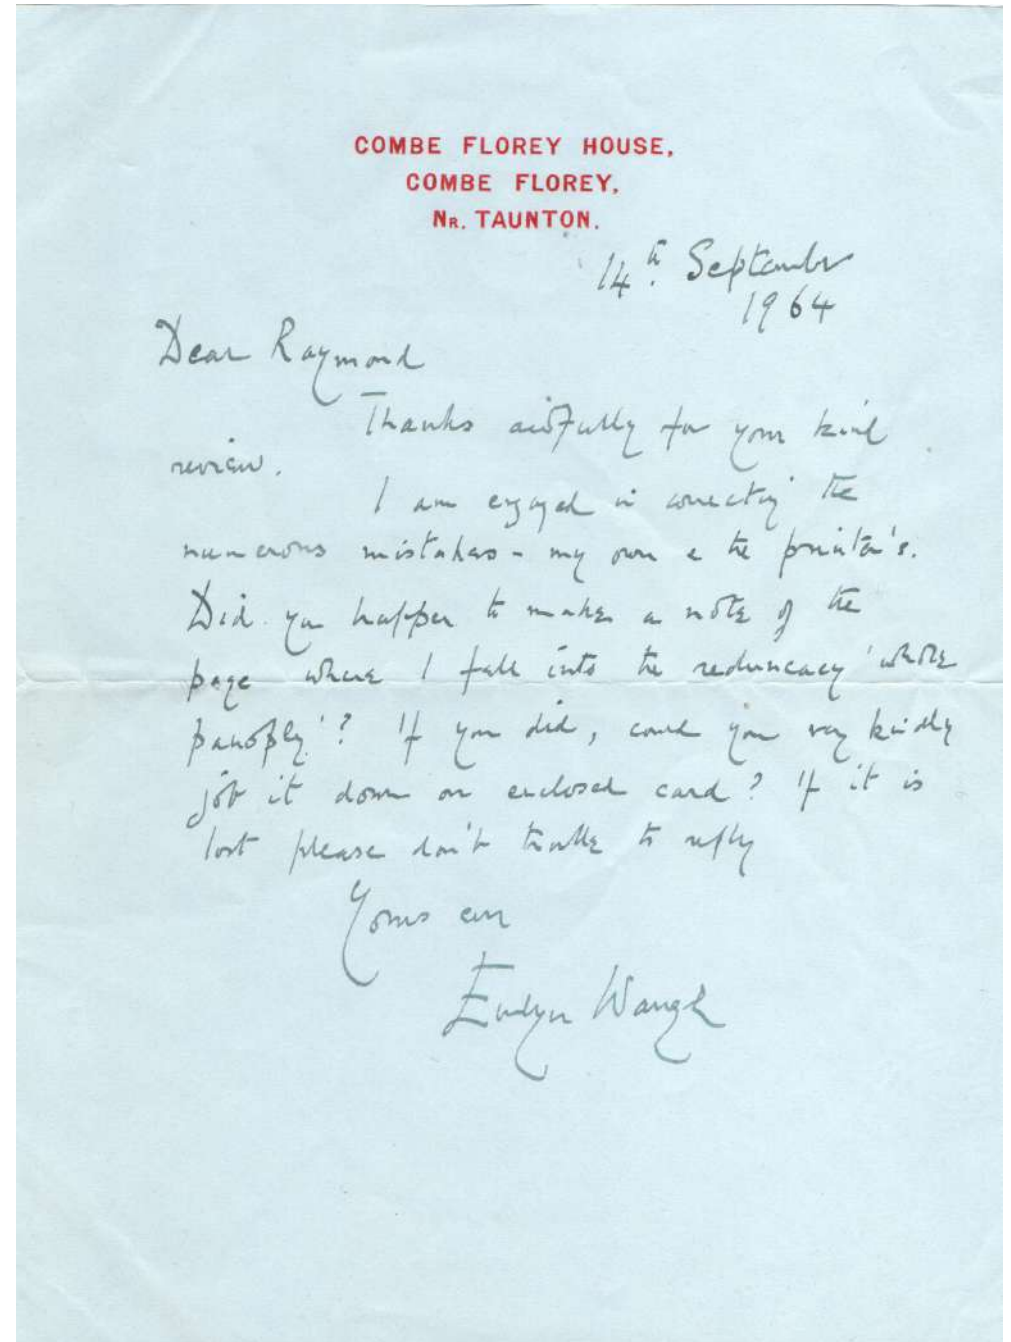 COMBE FLOREY HOUSE,
COMBE FLOREY,
NR. TAUNTON.
14th. September
1964
Dear Raymond
Thanks awfully for your kind
review.
I am engaged in correcting the
numerous mistakes - my own & the printer's.
Did you happen to make a note of the
page where I fall into the reduncacy 'whole
panoply'? If you did, could you very kindly
jot it down on enclosed card? If it is
lost please don't trouble to reply
Yours ever
Evelyn Waugh